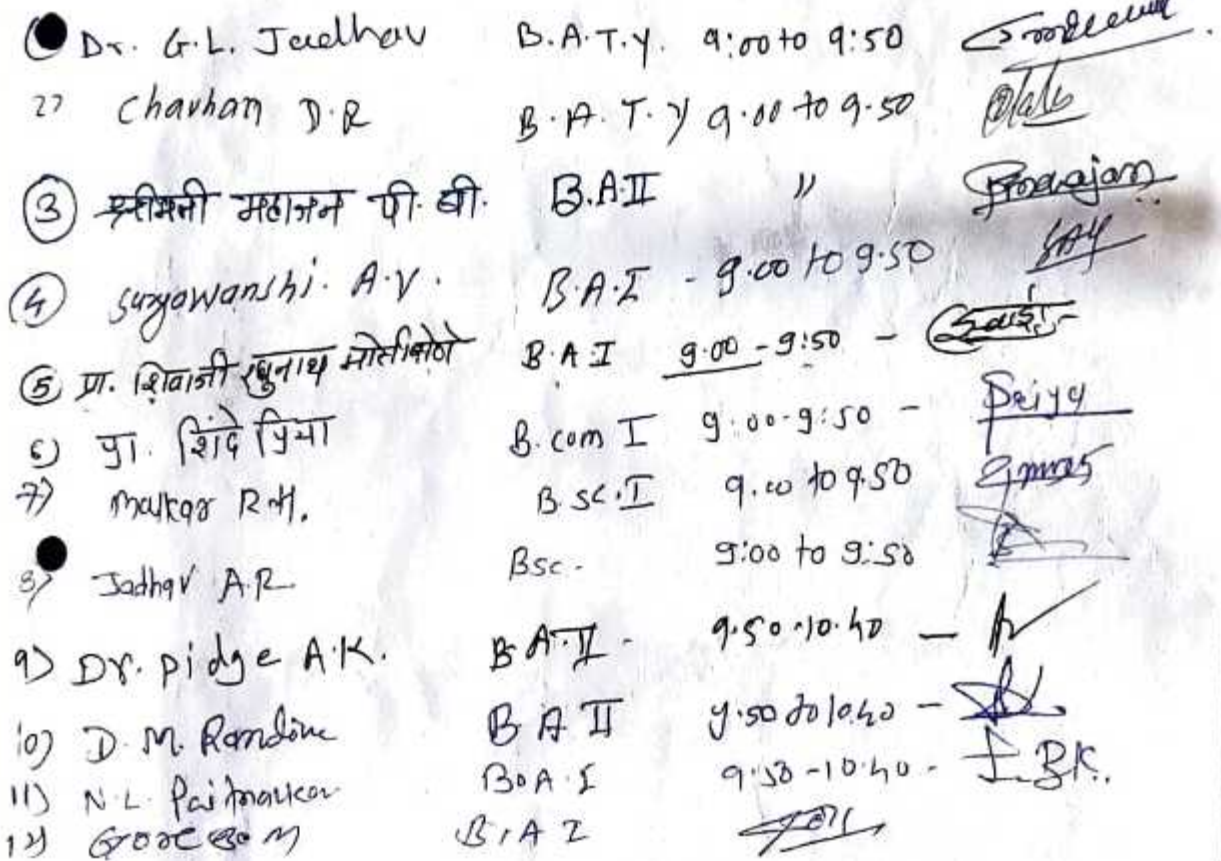 Dr. G.L. Jadhav B.A.T.Y. 9:00 to 9:50
2) Chavhan D.R B.A.T.Y 9.00 to 9.50
3 श्रीमती महाजन पी. बी. B.A.II "
4 Suryawanshi. A.V. B.A.I - 9.00 to 9.50
5 प्रा. शिवाजी रघुनाथ B.A I 9:00 - 9:50 -
6) प्रा. शिंदे प्रिया B.com I 9:00-9:50 - Priya
7) Malkar R.H. B.SC.I 9.00 to 9.50
8) Jadhav A.R Bsc. 9:00 to 9:50
9) Dr. Pidge A.K. B A.II - 9.50-10.40 -
10) D.M. B A II 9.50 to 10.40 -
11) N.L. B.A.I 9.50-10.40 -
12) Gore B.A I